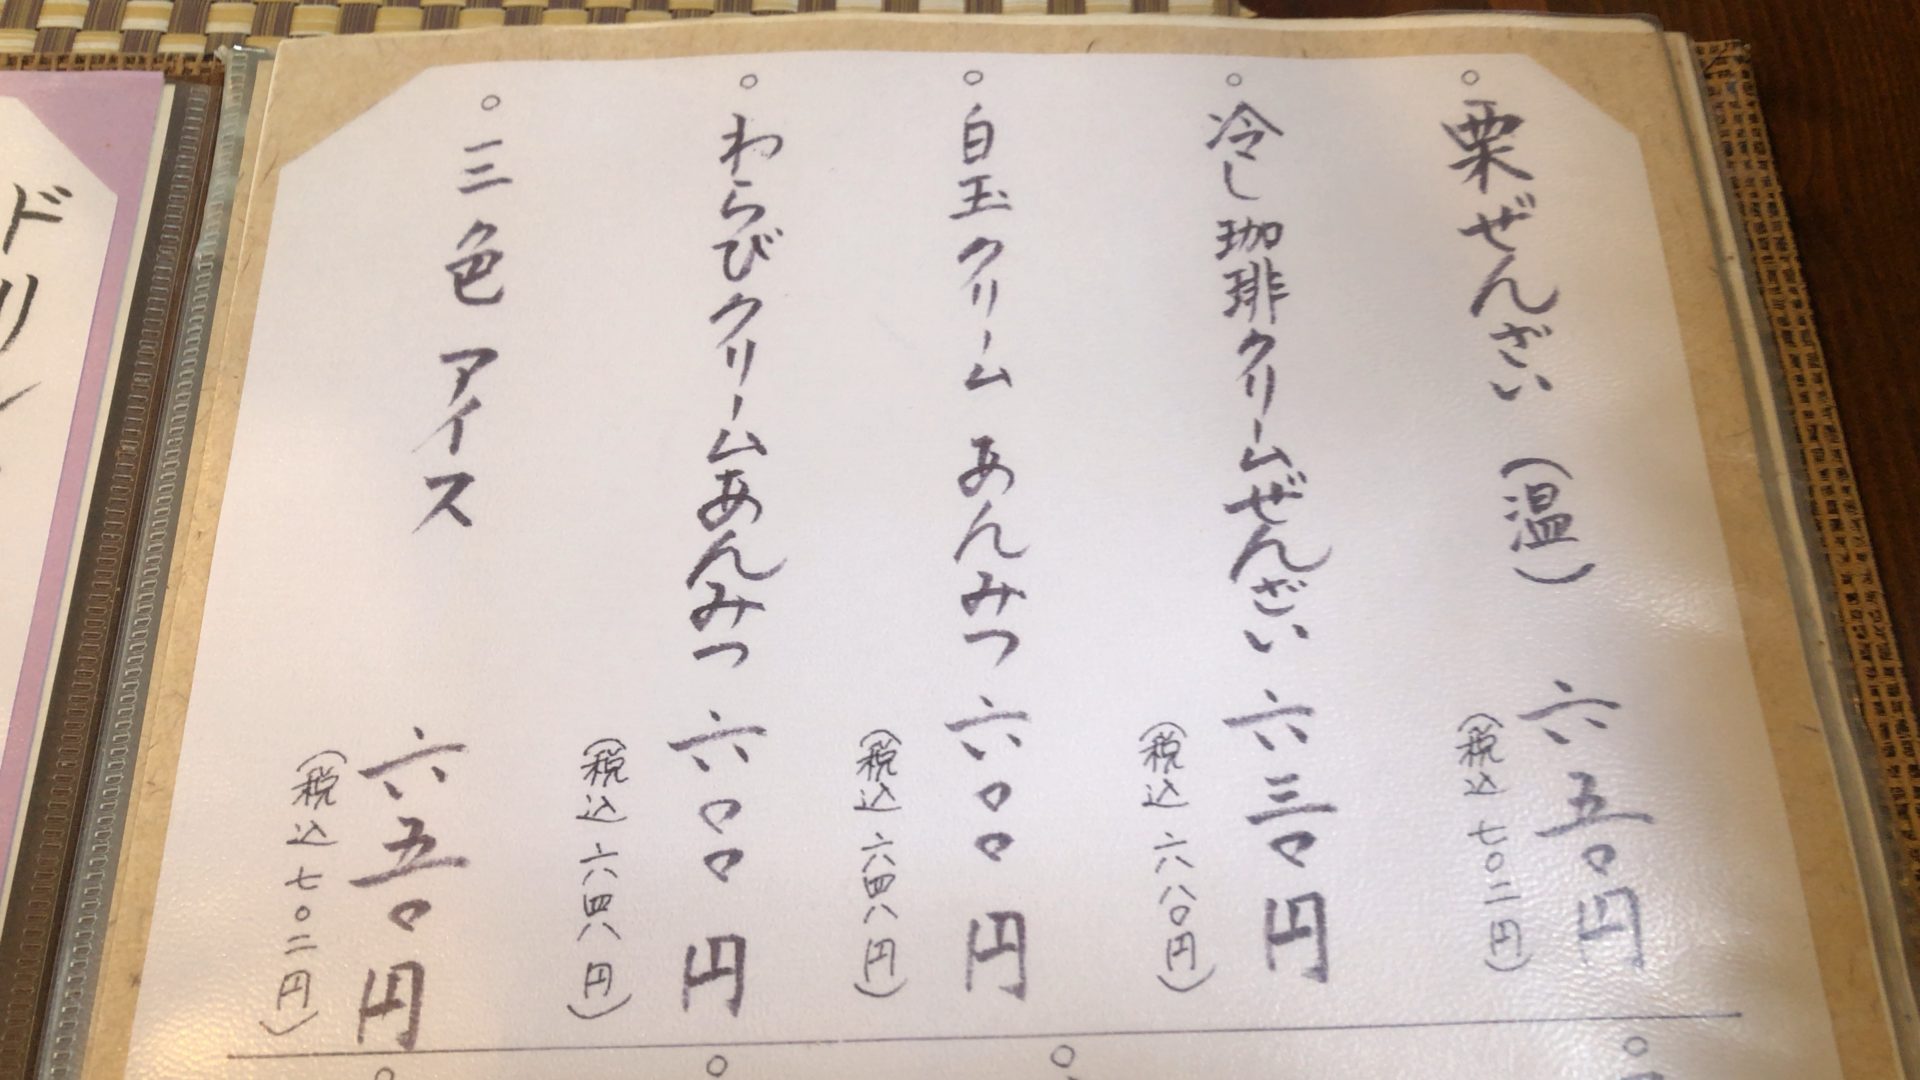 栗ぜんざい(温) 六五〇円
(税込七〇二円)
冷し珈琲クリームぜんざい 六三〇円
(税込六八〇円)
白玉クリームあんみつ 六〇〇円
(税込六四八円)
わらびクリームあんみつ 六〇〇円
(税込六四八円)
三色アイス 六五〇円
(税込七〇二円)
ドリ